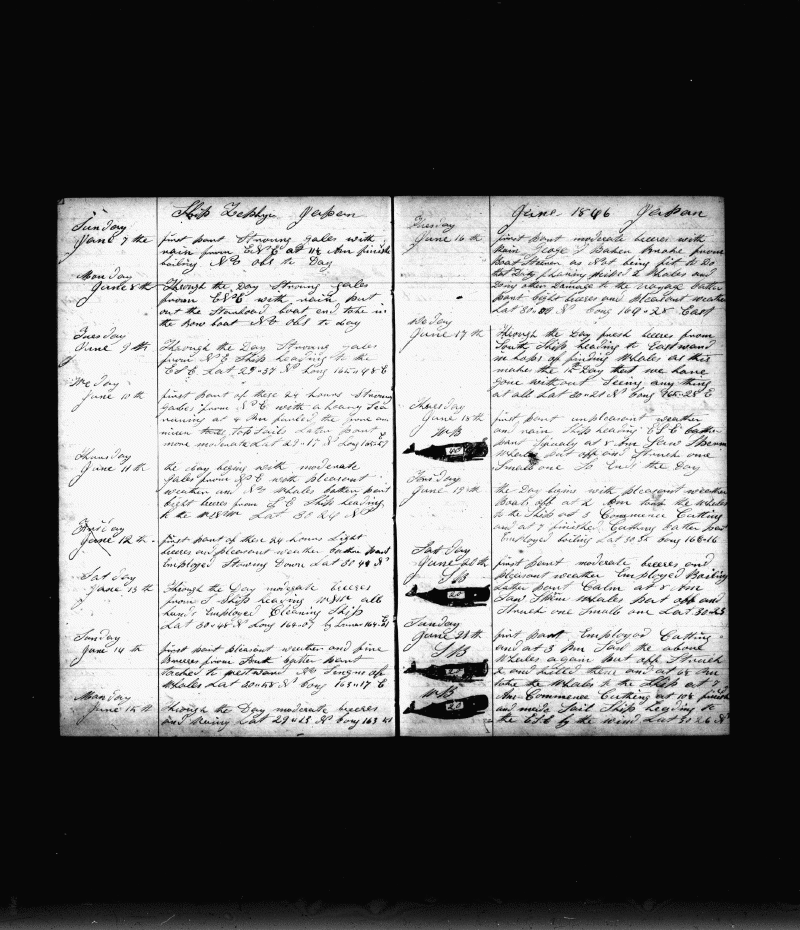 Ship Zephyr Japan
Sunday
June 7 th first part Strong gales with
rain from E N E at 11 Am finish
boiling No obs the Day
Monday
June 8 th Through the Day Strong gales
from E N E with rain put
out the Starboard boat and take in
the bow boat No obs to day
Tuesday
June 9 th Through the Day Strong gales
from N E Ship heading to the
E S E Lat 29-37 N Long 165-48 E
Weday
June 10 th first part of these 24 hours Strong
gales from N E with a heavy Sea
running at 4 Am furled the fore and
mizen top Sails Latter part
more moderate Lat 29-17 N Long
Thursday
June 11 th the day begins with moderate
gales from N E with pleasant
weather and No Whales Latter part
Light breeses from S E Ship heading
to the Lat 31-29 N
Friday
June 12 th first part of these 24 hours Light
breeses and pleasant weather Latter part
Employed Stowing Down Lat 31-48 N
Sat day
June 13 th Through the Day moderate breeses
from S Ship heading all
hands Employed Cleaning Ship
Lat 30-48 N Long 164-07 by Lunar
Sunday
June 14 th first part pleasant weather and fine
Breeses from South Latter part
tacked to westward No Signs of
Whales Lat 30-58 N Long 163-17 E
Monday
June 15 th Through the Day moderate breeses
and Lat 29-43 N Long 163
June 1846 Japan
Tuesday
June 16 th first part moderate breeses with
Rain Baker broke from
Boat Steerer as Not being fit to do
that Duty having missed Whales and
Doing other Damage to the voyage Latter
part Light breeses and pleasant weather
Lat 30 N Long 164-25 East
We day
June 17 th Through the Day fresh breeses from
South Ship heading to Eastward
in hopes of finding Whales as this
makes the 12 Day that we have
gone without Seing any thing
at all Lat 30-21 N Long 165-28 E
Thursday
June 18 th first part unpleasant weather
W B
40
an rain Ship heading E S E Latter
part Squaly at 8 Am Saw Sperm
Whales put off and Struck one
Small one So Ends the Day
Friday
June 19 th the Day begins with pleasant weather
Boats off at 2 Pm took the Whales
to the Ship at 3 Commence Cutting
and at 7 finished Cutting Latter part
Employed boiling Lat 30 Long 166-16
Sat day
June 20 th first part moderate breeses and
S B
20
pleasant weather Employed Boiling
Latter part Calm at 8 Am
Saw Sperm Whales put off and
Struck one Small one Lat 30-23
Sunday
June 21 th first part Employed Cutting
S B
20
and at 3 Pm Saw the above
Whales again put off Struck
2 one killed them and at 6 Am
take the Whales to the Ship at 7
W B
20
Am Commence Cutting at 10 finish
and made Sail Ship heading to
the E S E by the wind Lat 30 26 N